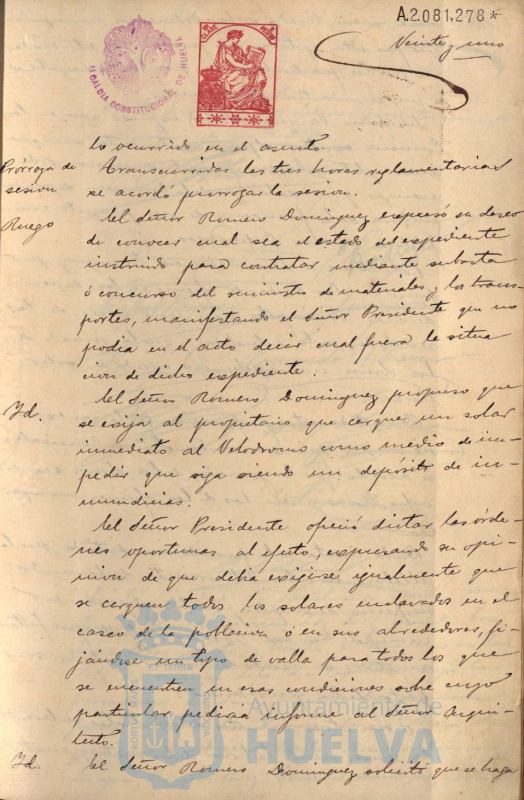 A.2.081.278*
Veinte y uno
ALCALDIA CONSTITUCIONAL DE HUELVA
lo ocurrido en el asunto.
Prórroga de sesion
Transcurridas las tres horas reglamentarias
se acordó prorrogar la sesion.
Ruego
El Señor Romero Dominguez expresó su deseo
de conocer cual sea el estado del expediente
instruido para contratar mediante subasta
ó concurso del suministro de materiales y los trans-
portes, manifestando el Señor Presidente que no
podia en el acto decir cual fuera la situa
cion de dicho expediente.
Yd.
El Señor Romero Dominguez propuso que
se exija al propietario que cerque un solar
inmediato al Velodromo como medio de im-
pedir que siga siendo un depósito de in-
mundicias.
El Señor Presidente ofreció dictar las órde-
nes oportunas al efecto, expresando su opi-
nion de que debia exigirse igualmente que
se cerquen todos los solares enclavados en el
casco de la poblacion ó en sus alrededores, fi-
jándose un tipo de valla para todos los que
se encuentren en esas condiciones sobre cuyo
particular pediria informe al Señor Arqui-
tecto.
Yd.
El Señor Romero Dominguez solicitó que se haga
Ayuntamiento de
HUELVA